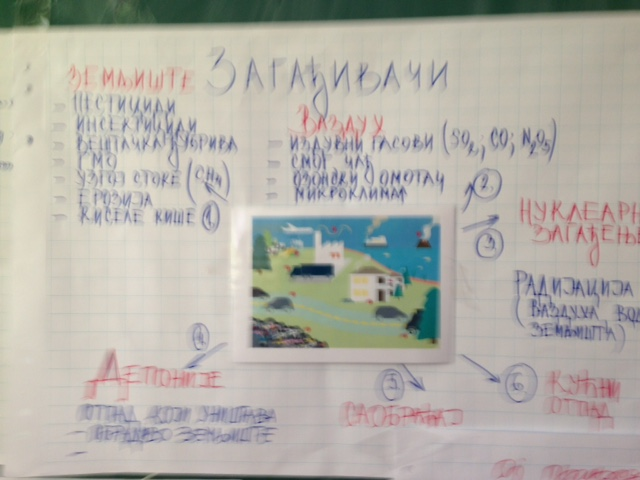 ЗАГАЂИВАЧИ
ЗЕМЉИШТЕ
ПЕСТИЦИДИ
ИНСЕКТИЦИДИ
ВЕШТАЧКА ЂУБРИВА
ГМО
УЗГОЈ СТОКЕ (CH4)
ЕРОЗИЈА
КИСЕЛЕ КИШЕ 1
ВАЗДУХ
ИЗДУВНИ ГАСОВИ (SO2; CO; N2O5)
СМОГ, ЧАЂ
ОЗОНСКИ ОМОТАЧ
МИКРОКЛИМА
2
3
НУКЛЕАРН
ЗАГАЂЕЊЕ
РАДИЈАЦИЈА
(ВАЗДУХА, ВОД
ЗЕМЉИШТА)
4
ДЕПОНИЈЕ
ОТПАД КОЈИ УНИШТАВА
- ОБРАДИВО ЗЕМЉИШТЕ
-
5
САОБРАЋАЈ
6
КУЋНИ
ОТПАД